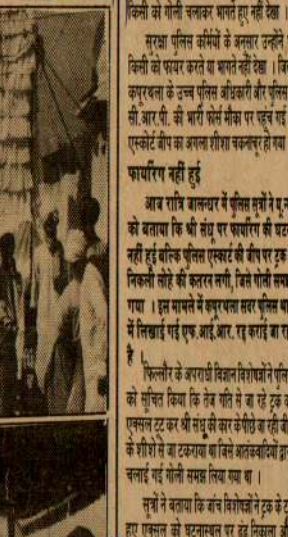 किसी को गोली चलाकर भागते हुए नहीं देखा ।
सुरक्षा पुलिस कर्मियों के अनुसार उन्होंने
किसी को फायर करते या भागते नहीं देखा ।
कपूरथला के उच्च पुलिस अधिकारी और पुलिस
सी.आर.पी. की भारी फोर्स मौका पर पहुंच गई
एस्कोर्ट जीप का अगला शीशा चकनाचूर हो गया
फायरिंग नहीं हुई
आज रात्रि जालन्धर में पुलिस सूत्रों ने
को बताया कि श्री संधू पर फायरिंग की
नहीं हुई बल्कि पुलिस एस्कार्ट की जीप पर ट्रक
निकली लोहे की कतरन लगी, जिसे गोली
गया । इस मामले में कपूरथला सदर पुलिस
में लिखाई गई एफ.आई.आर. रद्द कराई जा
है ।
फिल्लौर के अपराधी विज्ञान विशेषज्ञों ने
को सूचित किया कि तेज गति से जा रहे ट्रक
एक्सल टूट कर श्री संधू की कार के पीछे जा रही
के शीशे से जा टकराया था जिसे आतंकवादियों
चलाई गई गोली समझ लिया गया था ।
सूत्रों ने बताया कि बांच विशेषज्ञों ने ट्रक के
हुए एक्सल को घटनास्थल पर ढूंढ निकाला